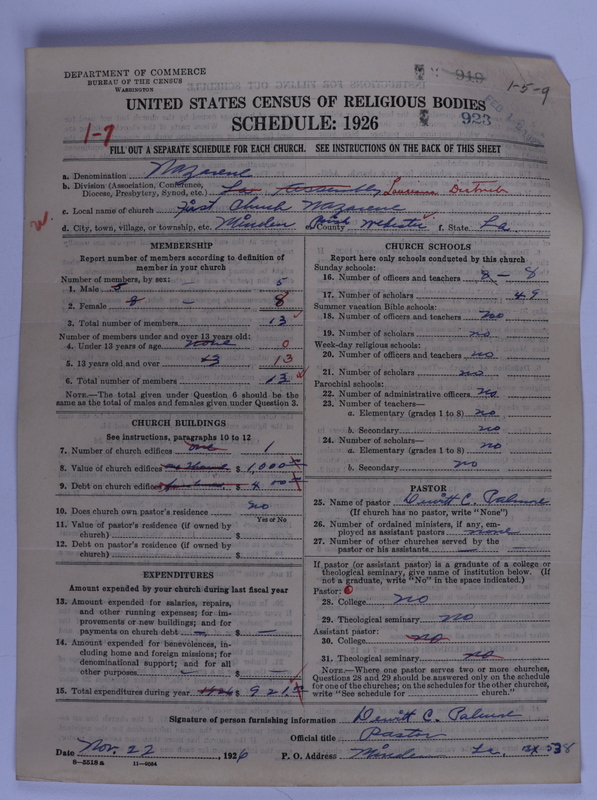 DEPARTMENT OF COMMERCE
BUREAU OF THE CENSUS
WASHINGTON
919
1-5-9
923
UNITED STATES CENSUS OF RELIGIOUS BODIES
SCHEDULE: 1926
1-7
FILL OUT A SEPARATE SCHEDULE FOR EACH CHURCH. SEE INSTRUCTIONS ON THE BACK OF THIS SHEET
a. Denomination Nazarene
b. Division (Association, Conference, Diocese, Presbytery, Synod, etc.) La Assembly Louisiana District
c. Local name of church First Church Nazarene
d. City, town, village, or township, etc. Minden e. County Parish Webster f. State La
MEMBERSHIP
Report number of members according to definition of member in your church
Number of members, by sex:
1. Male 5 – 5
2. Female 8 – 8
3. Total number of members 13
Number of members under and over 13 years old:
4. Under 13 years of age none 0
5. 13 years old and over 13 13
6. Total number of members 13
NOTE.—The total given under Question 6 should be the same as the total of males and females given under Question 3.
CHURCH BUILDINGS
See instructions, paragraphs 10 to 12
7. Number of church edifices one 1
8. Value of church edifices $ 1,000.00
9. Debt on church edifices $ 400
10. Does church own pastor's residence no
Yes or No
11. Value of pastor's residence (if owned by church) $
12. Debt on pastor's residence (if owned by church) $
EXPENDITURES
Amount expended by your church during last fiscal year
13. Amount expended for salaries, repairs, and other running expenses; for improvements or new buildings; and for payments on church debt – $ –
14. Amount expended for benevolences, including home and foreign missions; for denominational support; and for all other purposes – $ –
15. Total expenditures during year 1926 $ 921.00
CHURCH SCHOOLS
Report here only schools conducted by this church
Sunday schools:
16. Number of officers and teachers 8 – 8
17. Number of scholars 49
Summer vacation Bible schools:
18. Number of officers and teachers no
19. Number of scholars no
Week-day religious schools:
20. Number of officers and teachers no
21. Number of scholars no
Parochial schools:
22. Number of administrative officers no
23. Number of teachers—
a. Elementary (grades 1 to 8) no
b. Secondary no
24. Number of scholars—
a. Elementary (grades 1 to 8) no
b. Secondary no
PASTOR
25. Name of pastor Dewitt C. Palmer
(If church has no pastor, write "None")
26. Number of ordained ministers, if any, employed as assistant pastors none
27. Number of other churches served by the pastor or his assistants –
If pastor (or assistant pastor) is a graduate of a college or theological seminary, give name of institution below. (If not a graduate, write "No" in the space indicated.)
Pastor:
28. College no
29. Theological seminary no
Assistant pastor:
30. College no
31. Theological seminary no
NOTE.—Where one pastor serves two or more churches, Questions 28 and 29 should be answered only on the schedule for one of the churches; on the schedules for the other churches, write "See schedule for church."
Signature of person furnishing information Dewitt C. Palmer
Official title Pastor
Date Nov. 22, 1926 P. O. Address Minden La, Bx 538
8—5518 a 11—9034